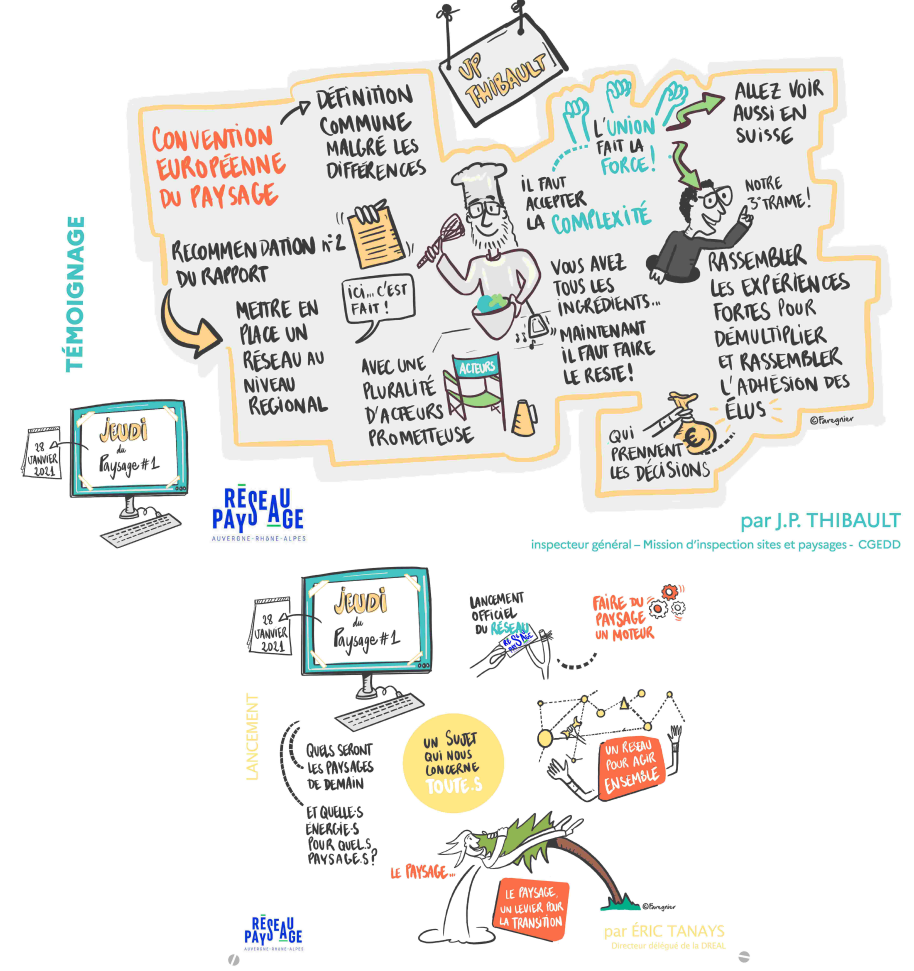 JP
THIBAULT
CONVENTION
EUROPÉENNE
DU PAYSAGE
DÉFINITION
COMMUNE
MALGRÉ LES
DIFFÉRENCES
L'UNION
FAIT LA
FORCE!
ALLEZ VOIR
AUSSI EN
SUISSE
IL FAUT
ACCEPTER
LA COMPLEXITÉ
NOTRE
3e TRAME!
RECOMMENDATION n°2
DU RAPPORT
ICI... C'EST
FAIT!
METTRE EN
PLACE UN
RÉSEAU AU
NIVEAU
REGIONAL
VOUS AVEZ
TOUS LES
INGRÉDIENTS...
MAINTENANT
IL FAUT FAIRE
LE RESTE!
RASSEMBLER
LES EXPÉRIENCES
FORTES POUR
DÉMULTIPLIER
ET RASSEMBLER
L'ADHÉSION DES
ÉLUS
AVEC UNE
PLURALITÉ
D'ACTEURS
PROMETTEUSE
ACTEURS
QUI
PRENNENT
LES DÉCISIONS
€
©Faregnier
TÉMOIGNAGE
28
JANVIER
2021
JEUDI
du
Paysage #1
RÉSEAU
PAYSAGE
AUVERGNE-RHÔNE-ALPES
par J.P. THIBAULT
inspecteur général – Mission d'inspection sites et paysages - CGEDD
28
JANVIER
2021
JEUDI
du
Paysage #1
LANCEMENT
OFFICIEL
DU RÉSEAU
RÉSEAU
PAYSAGE
FAIRE DU
PAYSAGE
UN MOTEUR
LANCEMENT
QUELS SERONT
LES PAYSAGES
DE DEMAIN
ET QUELLE·S
ENERGIE·S
POUR QUEL·S
PAYSAGE·S?
UN SUJET
QUI NOUS
CONCERNE
TOUTE.S
UN RÉSEAU
POUR AGIR
ENSEMBLE
LE PAYSAGE...
LE PAYSAGE,
UN LEVIER POUR
LA TRANSITION
©Faregnier
RÉSEAU
PAYSAGE
AUVERGNE-RHÔNE-ALPES
par ÉRIC TANAYS
Directeur délégué de la DREAL